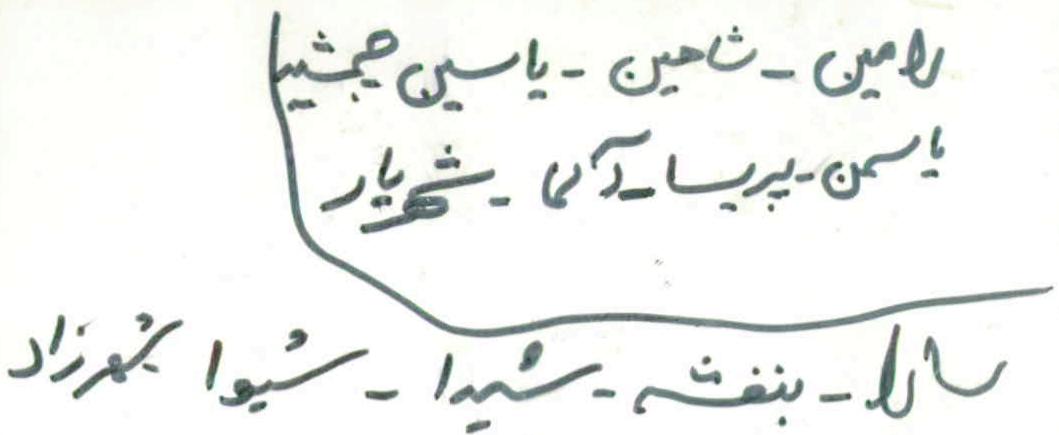 رامین - شاهین - یاسین جمشید
یاسمن - پریسا - آلما - شهریار
سارا - بنفشه - شیدا - شیوا شهرزاد